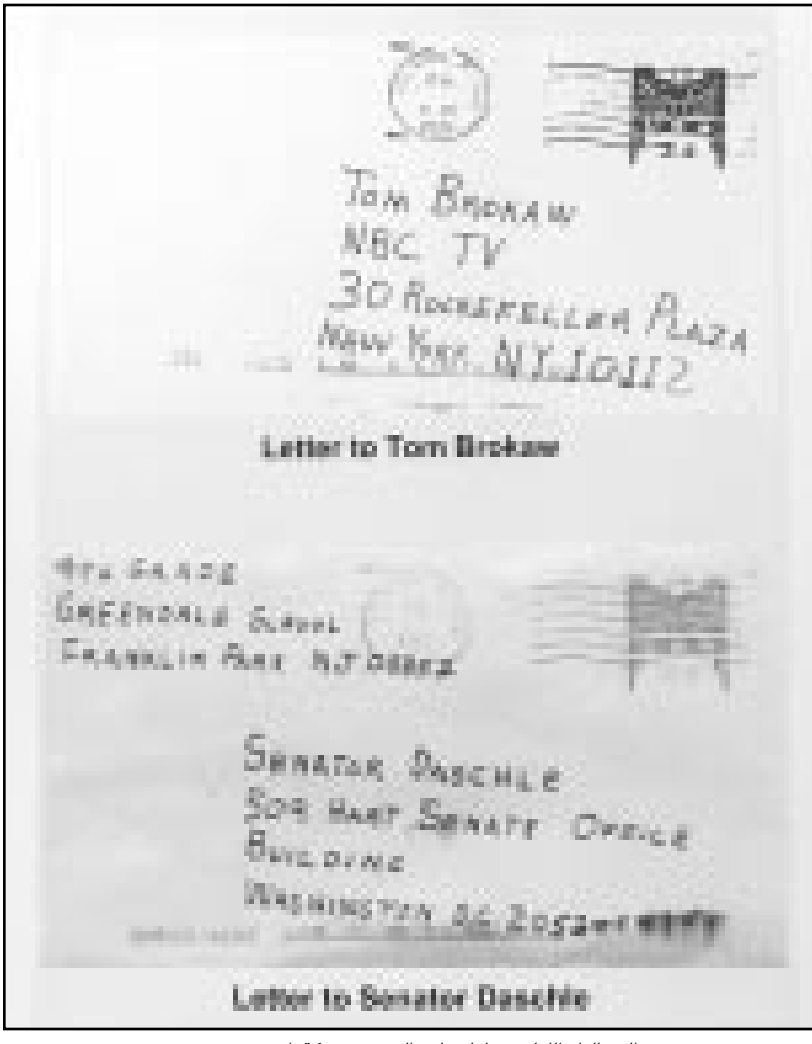 TOM BROKAW
NBC TV
30 ROCKEFELLER PLAZA
NEW YORK NY 10112
Letter to Tom Brokaw
4TH GRADE
GREENDALE SCHOOL
FRANKLIN PARK NJ 08852
SENATOR DASCHLE
509 HART SENATE OFFICE
BUILDING
WASHINGTON DC 20510
Letter to Senator Daschle